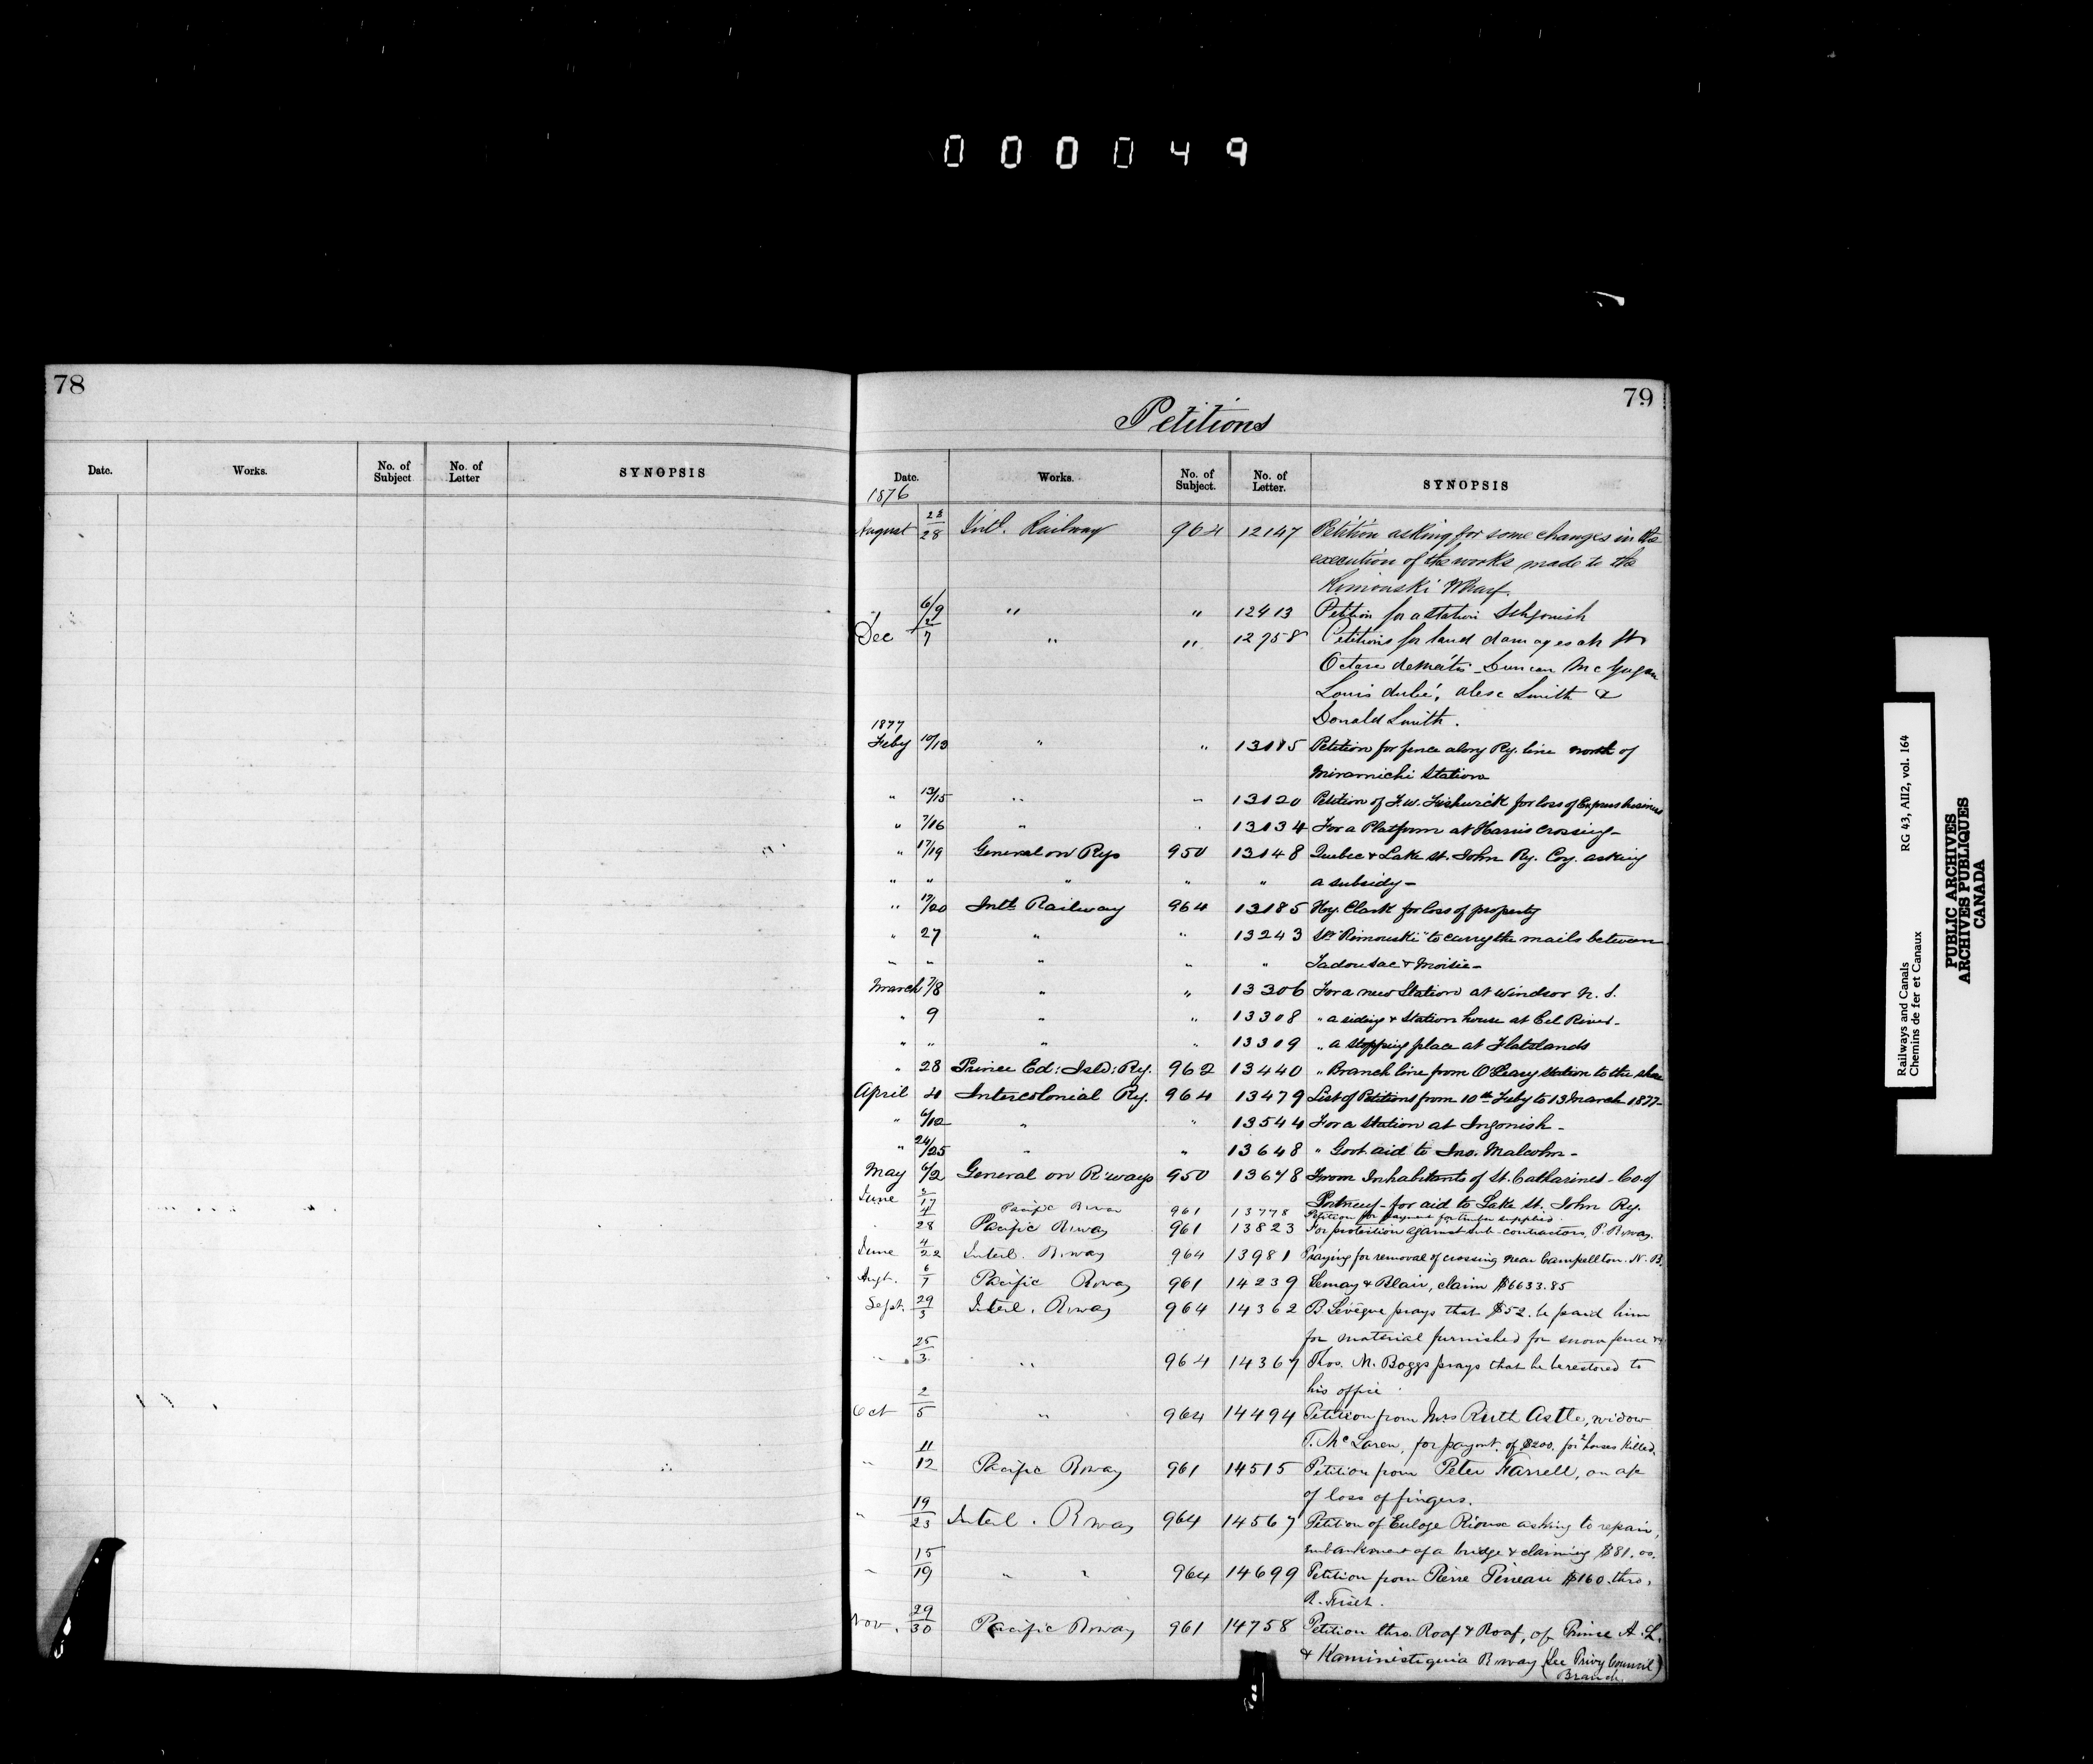 000049
78
Date. Works. No. of Subject No. of Letter SYNOPSIS
79
Petitions
Date. Works. No. of Subject. No. of Letter. SYNOPSIS
1876
August 23/28 Intl. Railway 964 12147 Petition asking for some changes in the
execution of the works made to the
Rimouski Wharf.
" 6/9 " " 12413 Petition for a station
Dec 2/7 " " 12758 Petitions for land damages at St
Octave de Métis - Duncan McGugan
Louis dubé, alexe Smith &
Donald Smith.
1877
Feby 10/13 " " 13115 Petition for fence along Ry. line north of
Miramichi Station
" 13/15 " " 13120 Petition of F. W. Fishwick for loss of Express business
" 7/16 " " 13134 For a Platform at Harris Crossing -
" 17/19 General on Rys 950 13148 Quebec & Lake St. John Ry. Coy. asking
" " " " " a subsidy -
" 19/20 Intl. Railway 964 13185 Hy. Clark for loss of property
" 27 " " 13243 Str "Rimouski" to carry the mails between
" " " " " Tadousac & Moisie -
March 7/8 " " 13306 For a new Station at Windsor N. S.
" 9 " " 13308 " a siding & Station house at Eel River -
" " " " 13319 " a stopping place at Flatlands
" 28 Prince Ed: Isld: Ry. 962 13440 " Branch line from O'Leary station to the shore
April 4 Intercolonial Ry. 964 13479 List of Petitions from 10th Feby to 13 March 1877 -
" 6/12 " " 13544 For a Station at Ingonish -
" 24/25 " " 13648 " Govt. aid to Jno. Malcolm -
May /2 General on R'ways 950 13678 From Inhabitants of St. Catharines - Co. of
Portneuf - for aid to Lake St. John Ry.
June /17 Pacific Rway 961 13778 Petition for payment for timber supplied.
" 4/28 Pacific Rway 961 13823 For protection against sub-contractors, P. Rway.
June 4/22 Intercl. Rway 964 13981 Praying for removal of crossing near Campellton. N. B.
Augt. 6/7 Pacific Rway 961 14239 Lemay & Blair, claim $6633.85
Sept. 29/3 Intercl. Rway 964 14362 B. Levêque prays that $52. be paid him
for material furnished for snow fence &c
" 25/3 " 964 14367 Thos. M. Boggs prays that he be restored to
his office
Oct 2/5 " 964 14494 Petition from Mrs Ruth Astle, widow
T. McLaren, for paymt. of $200. for 2 horses killed.
" 11/12 Pacific Rway 961 14515 Petition from Peter Farrell, on a/c
of loss of fingers.
" 19/23 Intercl. Rway 964 14567 Petition of Euloge Rioux asking to repair,
embankment of a bridge & claiming $81.00.
" 15/19 " " 964 14699 Petition from Pierre Pineau $160. thro,
R. Fiset.
Nov. 29/30 Pacific Rway 961 14758 Petition thro. Roaf & Roaf, of Prince A. L.
& Kaministiquia Rway (See Privy Council
Branch)
Railways and Canals RG 43, AII2, vol. 164
Chemins de fer et Canaux
PUBLIC ARCHIVES
ARCHIVES PUBLIQUES
CANADA